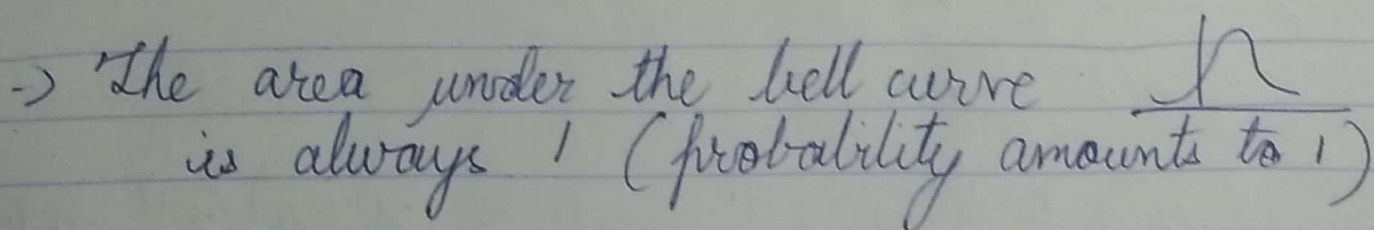 -> The area under the bell curve
is always 1 (probability amounts to 1)